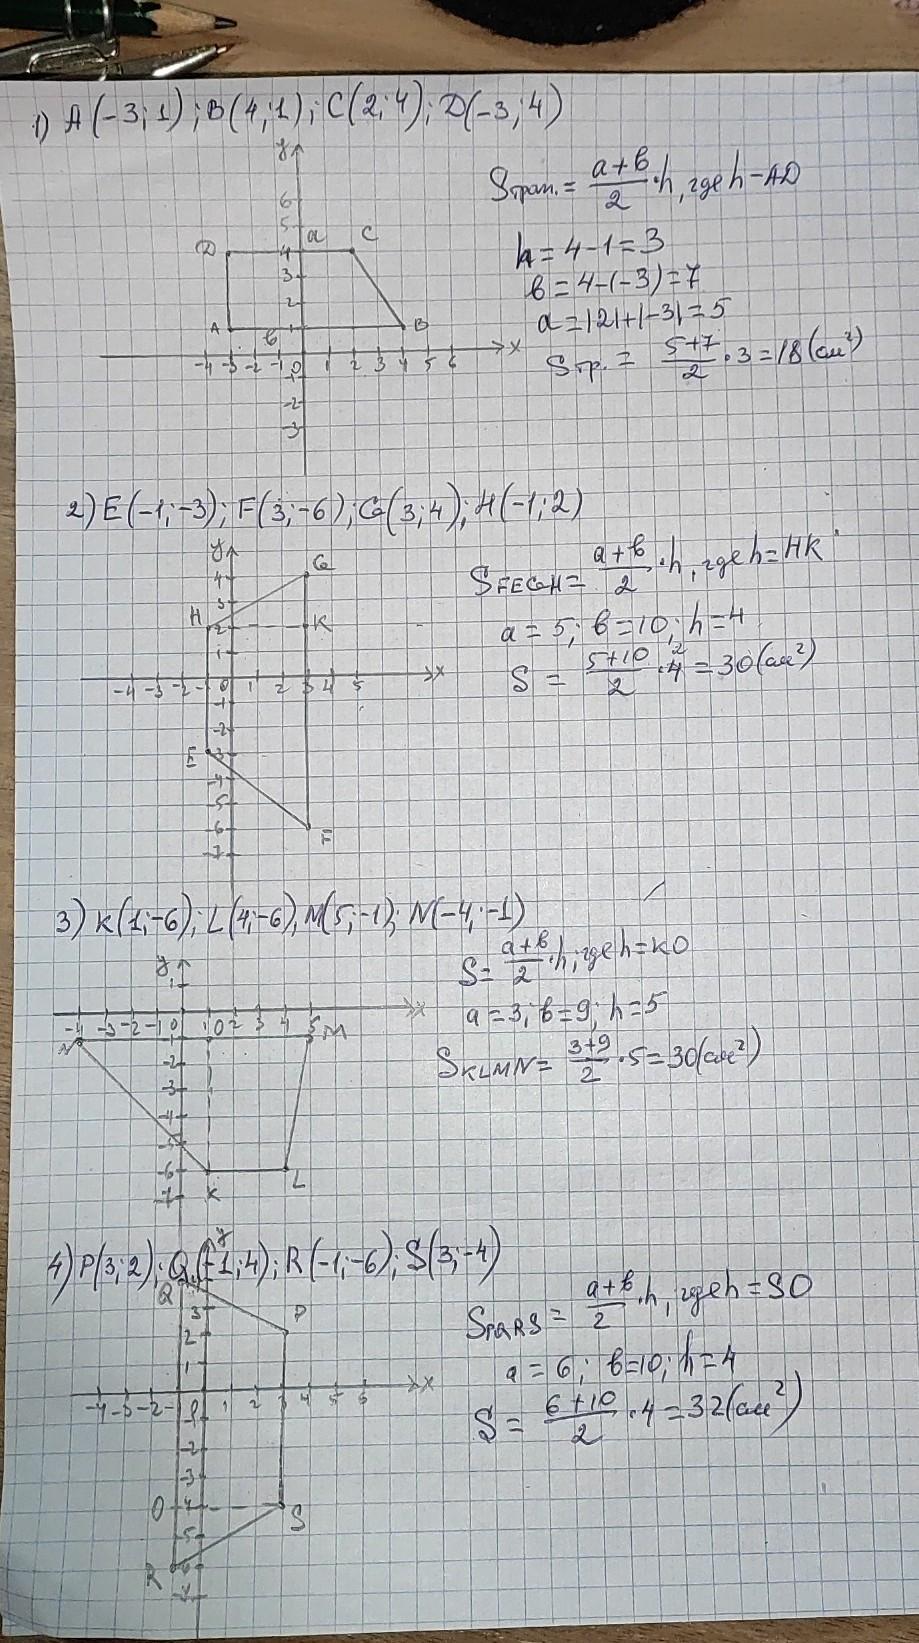 1) A(-3;1); B(4;1); C(2;4); D(-3;4)
y
6
5
D 4 a C
3
2
A 1 в B
-4 -3 -2 -1 0 1 2 3 4 5 6 x
-1
-2
-3
Sтрап. = a+в/2 · h, где h-AD
h = 4-1 = 3
в = 4-(-3) = 7
a = |2|+|-3| = 5
Sтр. = 5+7/2 · 3 = 18 (см²)
2) E(-1;-3); F(3;-6); G(3;4); H(-1;2)
y
4 G
3
H 2 K
1
-4 -3 -2 -1 0 1 2 3 4 5 x
-1
-2
E -3
-4
-5
-6 F
-7
SFEGH = a+в/2 · h, где h = HK
a = 5; в = 10; h = 4
S = 5+10/2 · 4 2 = 30 (см²)
3) K(1;-6); L(4;-6), M(5;-1); N(-4;-1)
y
1
-4 -3 -2 -1 0 1 0 2 3 4 5 x
N -1 M
-2
-3
-4
-5
-6 K L
-7
S = a+в/2 · h, где h = KO
a = 3; в = 9; h = 5
SKLMN = 3+9/2 · 5 = 30 (см²)
4) P(3;2); Q(-1;4); R(-1;-6); S(3;-4)
y
Q
3 P
2
1
-4 -3 -2 0 1 2 3 4 5 6 x
-2
-3
O -4 S
-5
R
SPQRS = a+в/2 · h, где h = SO
a = 6; в = 10; h = 4
S = 6+10/2 · 4 = 32 (см²)